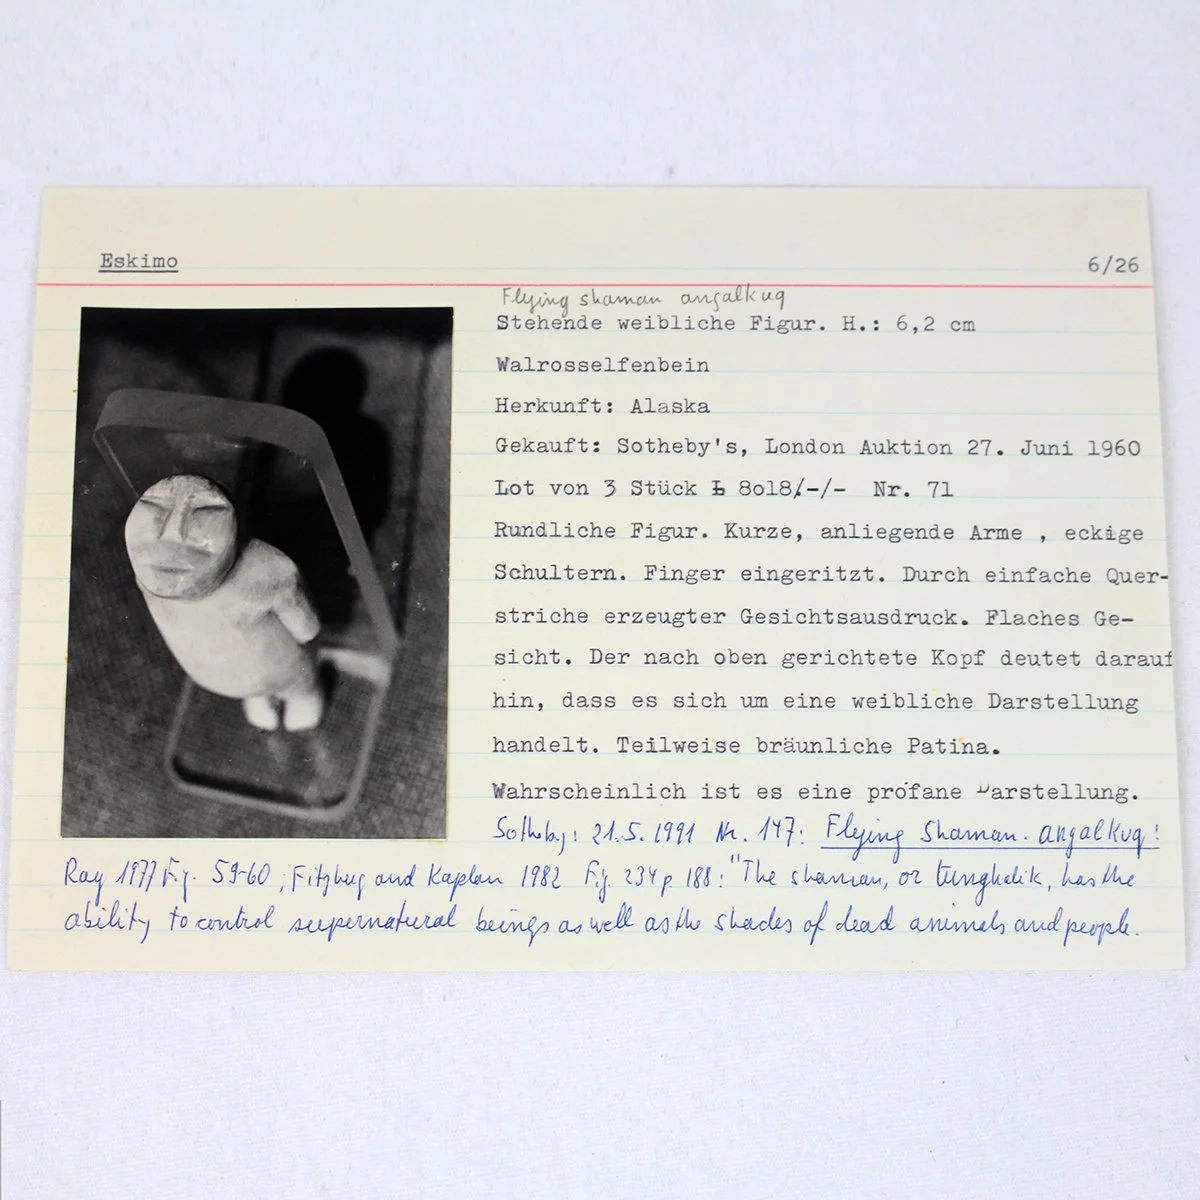 Eskimo
6/26
Flying shaman angalkuq
Stehende weibliche Figur. H.: 6,2 cm
Walrosselfenbein
Herkunft: Alaska
Gekauft: Sotheby's, London Auktion 27. Juni 1960
Lot von 3 Stück Ł 8o18/-/- Nr. 71
Rundliche Figur. Kurze, anliegende Arme , eckige
Schultern. Finger eingeritzt. Durch einfache Quer-
striche erzeugter Gesichtsausdruck. Flaches Ge-
sicht. Der nach oben gerichtete Kopf deutet darauf
hin, dass es sich um eine weibliche Darstellung
handelt. Teilweise bräunliche Patina.
Wahrscheinlich ist es eine profane Darstellung.
Sotheby: 21.5.1991 Nr. 147: Flying Shaman. angalkuq!
Ray 1977 Fig. 59-60; Fitzhug and Kaplan 1982 Fig. 234 p 188: "The shaman, or tunghalik, has the
ability to control supernatural beings as well as the shades of dead animals and people.